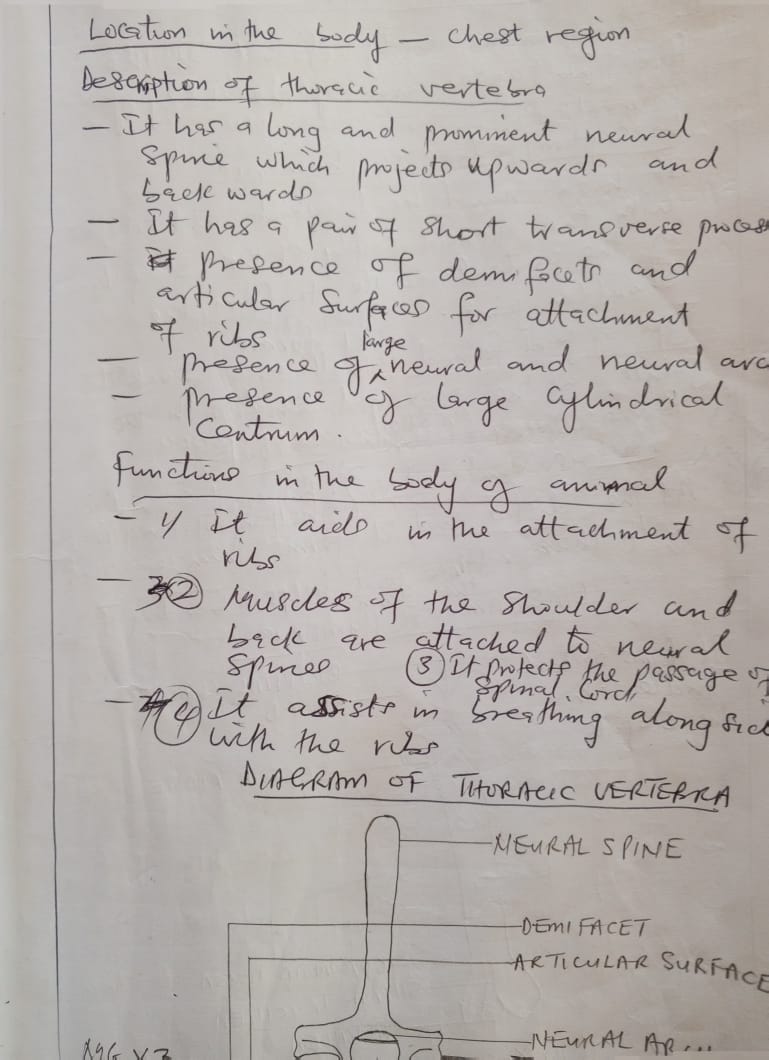 Location in the body – chest region
Description of thoracic vertebra
– It has a long and prominent neural
spine which projects upwards and
back wards
– It has a pair of short transverse process
– presence of demifacets and
articular surfaces for attachment
of ribs
– presence of large neural and neural arc
– presence of large cylindrical
Centrum.
Functions in the body of animal
– 1/ It aids in the attachment of
ribs
– 2 Muscles of the shoulder and
back are attached to neural
spines 3 It protects the passage of
spinal cord
– 4 It assists in breathing along sid
with the ribs
DIAGRAM OF THORACIC VERTEBRA
NEURAL SPINE
DEMI FACET
ARTICULAR SURFACE
NEURAL AR...